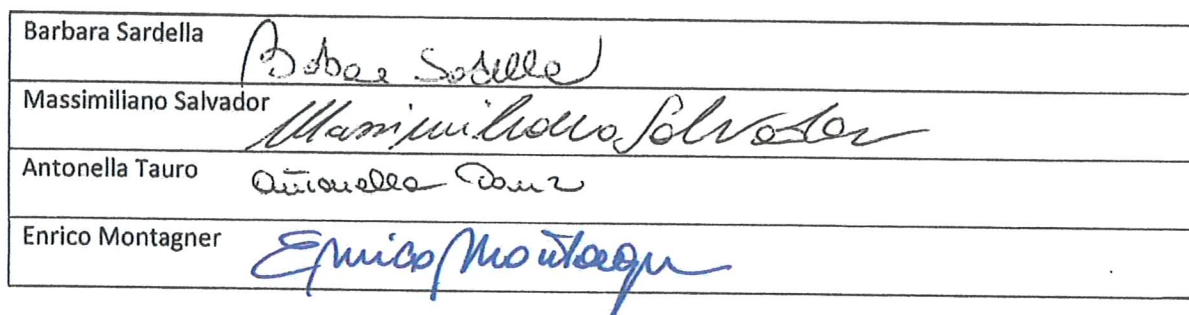 Barbara Sardella Barbara Sardella
Massimiliano Salvador Massimiliano Salvador
Antonella Tauro Antonella Tauro
Enrico Montagner Enrico Montagner